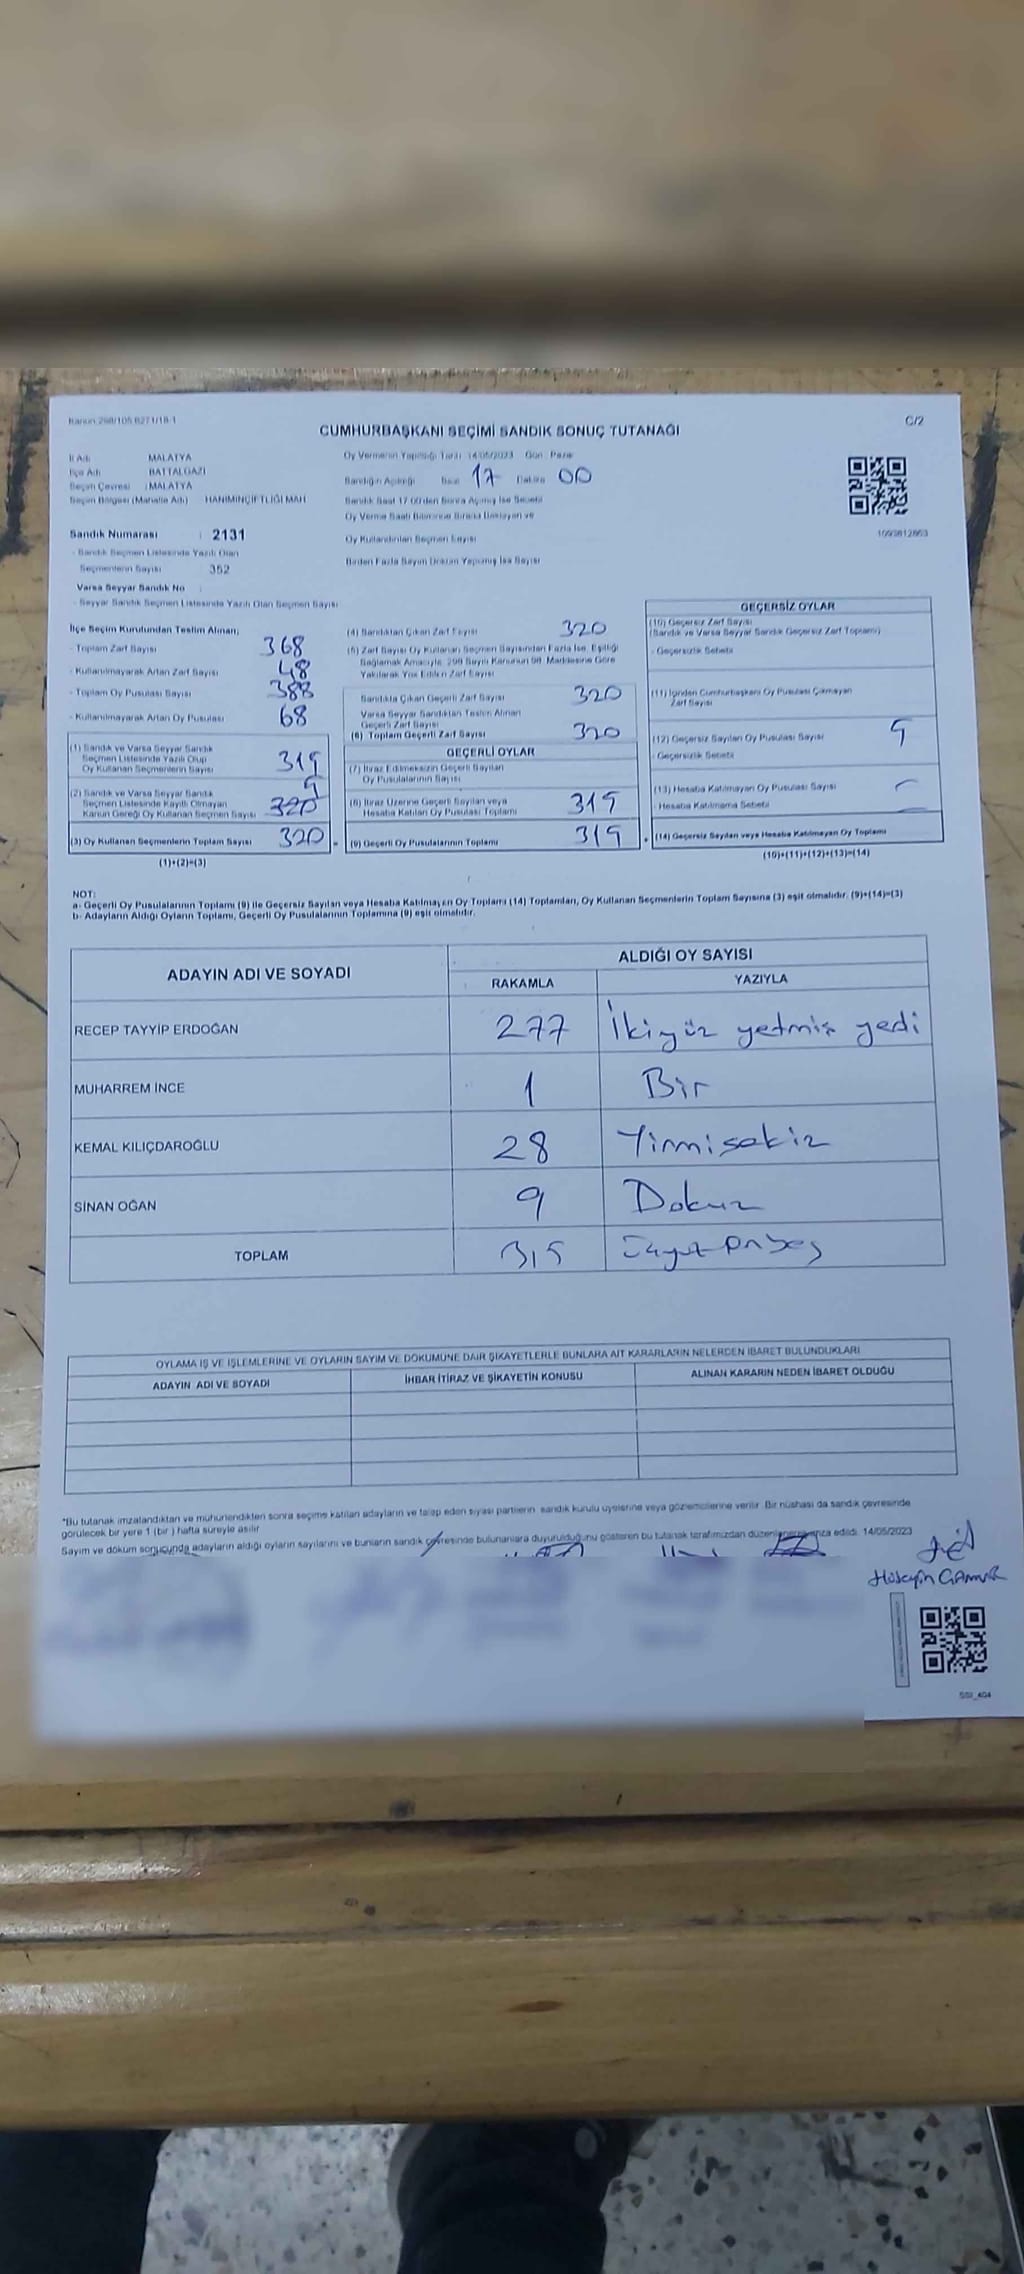 Kanun 298/105 6271/18-1
C/2
CUMHURBAŞKANI SEÇİMİ SANDIK SONUÇ TUTANAĞI
İl Adı MALATYA
İlçe Adı BATTALGAZİ
Seçim Çevresi : MALATYA
Seçim Bölgesi (Mahalle Adı) HANIMINÇİFTLİĞİ MAH
Oy Vermenin Yapıldığı Tarih 14/05/2023 Gün : Pazar
Sandığın Açıldığı Saat 17 Dakika 00
Sandık Saat 17.00'den Sonra Açılmış İse Sebebi
Oy Verme Saati Bitiminde Sırada Bekleyen ve
Oy Kullandırılan Seçmen Sayısı
Birden Fazla Sayım Döküm Yapılmış İse Sayısı
Sandık Numarası : 2131
- Sandık Seçmen Listesinde Yazılı Olan
Seçmenlerin Sayısı 352
Varsa Seyyar Sandık No :
- Seyyar Sandık Seçmen Listesinde Yazılı Olan Seçmen Sayısı
İlçe Seçim Kurulundan Teslim Alınan;
- Toplam Zarf Sayısı 368
- Kullanılmayarak Artan Zarf Sayısı 48
- Toplam Oy Pusulası Sayısı 388
- Kullanılmayarak Artan Oy Pusulası 68
(1) Sandık ve Varsa Seyyar Sandık
Seçmen Listesinde Yazılı Olup
Oy Kullanan Seçmenlerin Sayısı 319
(2) Sandık ve Varsa Seyyar Sandık
Seçmen Listesinde Kayıtlı Olmayan
Kanun Gereği Oy Kullanan Seçmen Sayısı 320
(3) Oy Kullanan Seçmenlerin Toplam Sayısı 320
(1)+(2)=(3)
(4) Sandıktan Çıkan Zarf Sayısı 320
(5) Zarf Sayısı Oy Kullanan Seçmen Sayısından Fazla İse, Eşitliği
Sağlamak Amacıyla, 298 Sayılı Kanunun 98. Maddesine Göre
Yakılarak Yok Edilen Zarf Sayısı
Sandıkta Çıkan Geçerli Zarf Sayısı 320
Varsa Seyyar Sandıktan Teslim Alınan
Geçerli Zarf Sayısı
(6) Toplam Geçerli Zarf Sayısı 320
GEÇERLİ OYLAR
(7) İtiraz Edilmeksizin Geçerli Sayılan
Oy Pusulalarının Sayısı
(8) İtiraz Üzerine Geçerli Sayılan veya
Hesaba Katılan Oy Pusulası Toplamı 315
(9) Geçerli Oy Pusulalarının Toplamı 315
GEÇERSİZ OYLAR
(10) Geçersiz Zarf Sayısı
(Sandık ve Varsa Seyyar Sandık Geçersiz Zarf Toplamı)
- Geçersizlik Sebebi
(11) İçinden Cumhurbaşkanı Oy Pusulası Çıkmayan
Zarf Sayısı
(12) Geçersiz Sayılan Oy Pusulası Sayısı
- Geçersizlik Sebebi
(13) Hesaba Katılmayan Oy Pusulası Sayısı
- Hesaba Katılmama Sebebi
(14) Geçersiz Sayılan veya Hesaba Katılmayan Oy Toplamı
(10)+(11)+(12)+(13)=(14)
NOT:
a- Geçerli Oy Pusulalarının Toplamı (9) ile Geçersiz Sayılan veya Hesaba Katılmayan Oy Toplamı (14) Toplamları, Oy Kullanan Seçmenlerin Toplam Sayısına (3) eşit olmalıdır. (9)+(14)=(3)
b- Adayların Aldığı Oyların Toplamı, Geçerli Oy Pusulalarının Toplamına (9) eşit olmalıdır.
ADAYIN ADI VE SOYADI ALDIĞI OY SAYISI
RAKAMLA YAZIYLA
RECEP TAYYİP ERDOĞAN 277 İkiyüz yetmiş yedi
MUHARREM İNCE 1 Bir
KEMAL KILIÇDAROĞLU 28 Yirmisekiz
SİNAN OĞAN 9 Dokuz
TOPLAM 315 Üçyüz Onbeş
OYLAMA İŞ VE İŞLEMLERİNE VE OYLARIN SAYIM VE DÖKÜMÜNE DAİR ŞİKAYETLERLE BUNLARA AİT KARARLARIN NELERDEN İBARET BULUNDUKLARI
ADAYIN ADI VE SOYADI İHBAR İTİRAZ VE ŞİKAYETİN KONUSU ALINAN KARARIN NEDEN İBARET OLDUĞU
*Bu tutanak imzalandıktan ve mühürlendikten sonra seçime katılan adayların ve talep eden siyasi partilerin sandık kurulu üyelerine veya gözlemcilerine verilir. Bir nüshası da sandık çevresinde
görülecek bir yere 1 (bir ) hafta süreyle asılır
Sayım ve döküm sonucunda adayların aldığı oyların sayılarını ve bunların sandık çevresinde bulunanlara duyurulduğunu gösteren bu tutanak tarafımızdan düzenlenerek imza edildi. 14/05/2023
Hüseyin
SSI_404